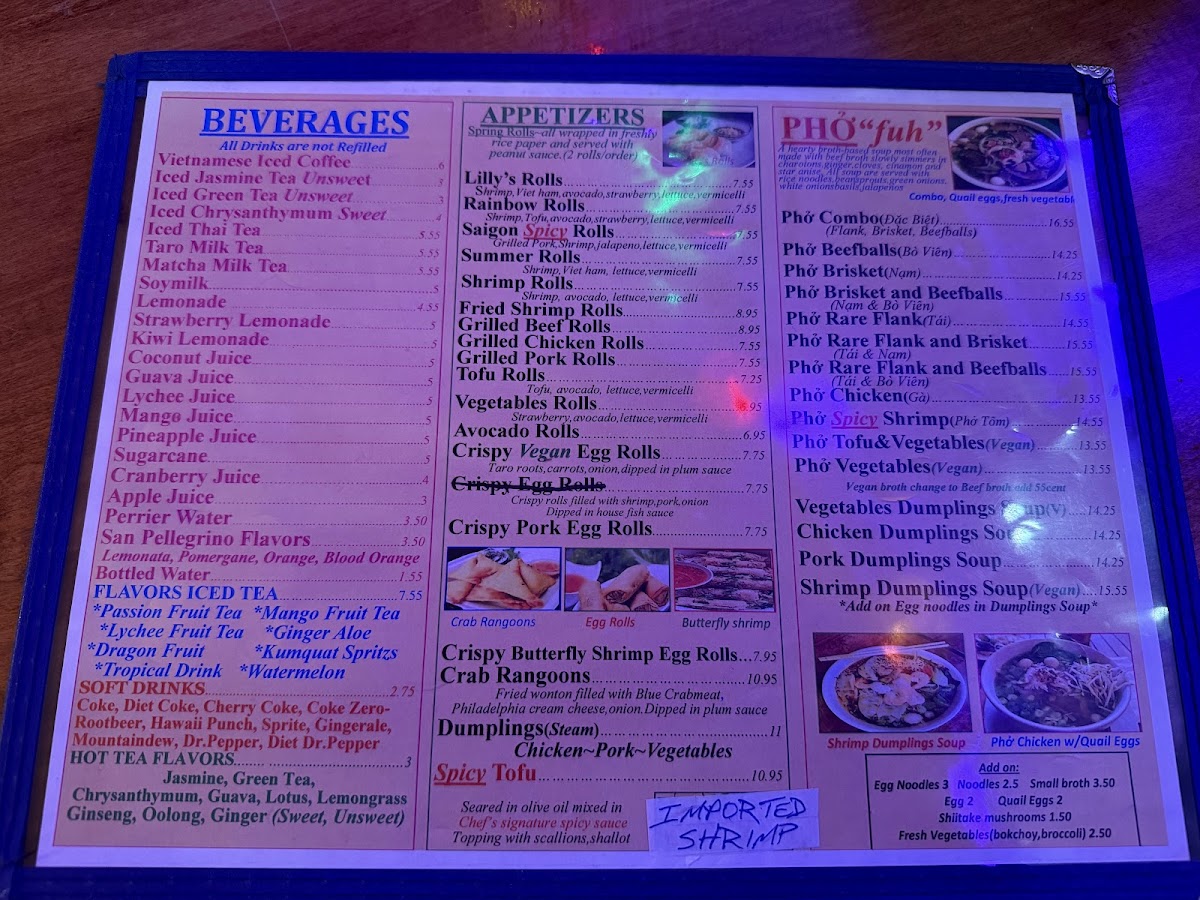 BEVERAGES
All Drinks are not Refilled
Vietnamese Iced Coffee 6
Iced Jasmine Tea Unsweet 3
Iced Green Tea Unsweet 3
Iced Chrysanthymum Sweet 4
Iced Thai Tea 5.55
Taro Milk Tea 5.55
Matcha Milk Tea 5.55
Soymilk 5
Lemonade 4.55
Strawberry Lemonade 5
Kiwi Lemonade 5
Coconut Juice 5
Guava Juice 5
Lychee Juice 5
Mango Juice 5
Pineapple Juice 5
Sugarcane 5
Cranberry Juice 4
Apple Juice 3
Perrier Water 3.50
San Pellegrino Flavors 3.50
Lemonata, Pomergane, Orange, Blood Orange
Bottled Water 1.55
FLAVORS ICED TEA 7.55
*Passion Fruit Tea *Mango Fruit Tea
*Lychee Fruit Tea *Ginger Aloe
*Dragon Fruit *Kumquat Spritzs
*Tropical Drink *Watermelon
SOFT DRINKS 2.75
Coke, Diet Coke, Cherry Coke, Coke Zero-
Rootbeer, Hawaii Punch, Sprite, Gingerale,
Mountaindew, Dr.Pepper, Diet Dr.Pepper
HOT TEA FLAVORS 3
Jasmine, Green Tea,
Chrysanthymum, Guava, Lotus, Lemongrass
Ginseng, Oolong, Ginger (Sweet, Unsweet)
APPETIZERS
Spring Rolls~all wrapped in freshly
rice paper and served with
peanut sauce.(2 rolls/order)
Lilly's Rolls 7.55
Shrimp,Viet ham,avocado,strawberry,lettuce,vermicelli
Rainbow Rolls 7.55
Shrimp,Tofu,avocado,strawberry,lettuce,vermicelli
Saigon Spicy Rolls 7.55
Grilled Pork,Shrimp,jalapeno,lettuce,vermicelli
Summer Rolls 7.55
Shrimp,Viet ham, lettuce,vermicelli
Shrimp Rolls 7.55
Shrimp, avocado, lettuce,vermicelli
Fried Shrimp Rolls 8.95
Grilled Beef Rolls 8.95
Grilled Chicken Rolls 7.55
Grilled Pork Rolls 7.55
Tofu Rolls 7.25
Tofu, avocado, lettuce,vermicelli
Vegetables Rolls 6.95
Strawberry,avocado,lettuce,vermicelli
Avocado Rolls 6.95
Crispy Vegan Egg Rolls 7.75
Taro roots,carrots,onion,dipped in plum sauce
Crispy Egg Rolls 7.75
Crispy rolls filled with shrimp,pork,onion
Dipped in house fish sauce
Crispy Pork Egg Rolls 7.75
Crab Rangoons Egg Rolls Butterfly shrimp
Crispy Butterfly Shrimp Egg Rolls...7.95
Crab Rangoons 10.95
Fried wonton filled with Blue Crabmeat,
Philadelphia cream cheese,onion.Dipped in plum sauce
Dumplings(Steam) 11
Chicken~Pork~Vegetables
Spicy Tofu 10.95
Seared in olive oil mixed in
Chef's signature spicy sauce
Topping with scallions,shallot
IMPORTED
SHRIMP
PHỞ "fuh"
A hearty broth-based soup most often
made with beef broth slowly simmers in
charotons,ginger,cloves, cinamon and
star anise. All soup are served with
rice noodles,beansprouts,green onions,
white onionsbasils,jalapenos
Combo, Quail eggs,fresh vegetabl
Phở Combo(Đặc Biệt) 16.55
(Flank, Brisket, Beefballs)
Phở Beefballs(Bò Viên) 14.25
Phở Brisket(Nạm) 14.25
Phở Brisket and Beefballs 15.55
(Nạm & Bò Viên)
Phở Rare Flank(Tái) 14.55
Phở Rare Flank and Brisket 15.55
(Tái & Nạm)
Phở Rare Flank and Beefballs 15.55
(Tái & Bò Viên)
Phở Chicken(Gà) 13.55
Phở Spicy Shrimp(Phở Tôm) 14.55
Phở Tofu&Vegetables(Vegan) 13.55
Phở Vegetables(Vegan) 13.55
Vegan broth change to Beef broth add 55cent
Vegetables Dumplings Soup(V) 14.25
Chicken Dumplings Soup 14.25
Pork Dumplings Soup 14.25
Shrimp Dumplings Soup(Vegan) 15.55
*Add on Egg noodles in Dumplings Soup*
Shrimp Dumplings Soup Phở Chicken w/Quail Eggs
Add on:
Egg Noodles 3 Noodles 2.5 Small broth 3.50
Egg 2 Quail Eggs 2
Shiitake mushrooms 1.50
Fresh Vegetables(bokchoy,broccoli) 2.50